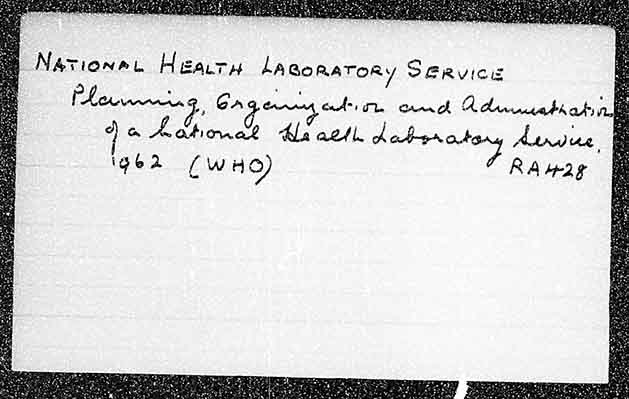 NATIONAL HEALTH LABORATORY SERVICE
Planning, Organization and Administration
of a National Health Laboratory Service,
1962 (WHO) RA428